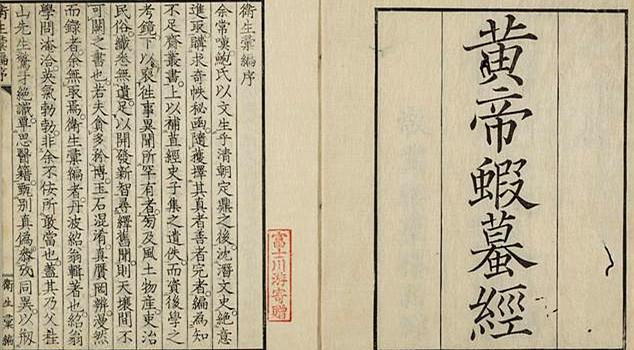 黄帝蝦蟇經
富士川游寄贈
衛生彙編序
余常嘆鮑氏以文生乎清朝定鼎之後沈潛文史絶意
進取購求奇帙秘函隨獲擇其真者善者完者編為知
不足齋叢書上以補直經史子集之遺佚而資後學之
考鏡下以裒往事異聞所罕有者及風土物産吏治
民俗讖無遺足以開發新智尋繹舊聞則天壤間不
可闕之書也若夫貪多矜博玉石混淆真贋罔辨漫然
而錄者余無取焉衛生彙編者丹波紹翁輯著也紹翁
學問淹洽英氣勃勃非余不佞所敢當也蓋其乃父桂
山先生鷙才絶識覃思醫籍甄別真偽叅攷同異以剙
衛生彙編序
衛生彙編